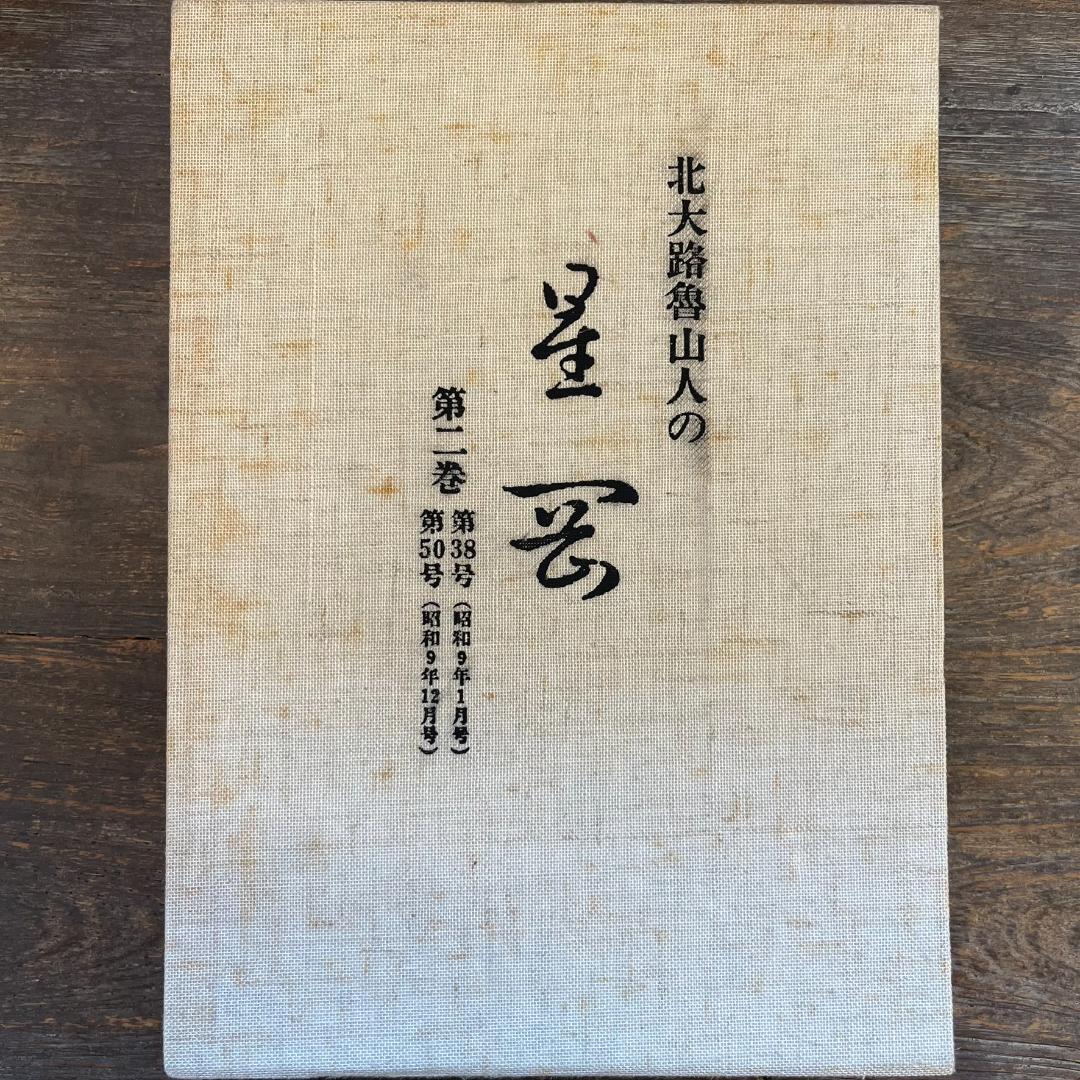 北大路魯山人の
星岡
第二巻
第38号（昭和9年1月号）
第50号（昭和9年12月号）